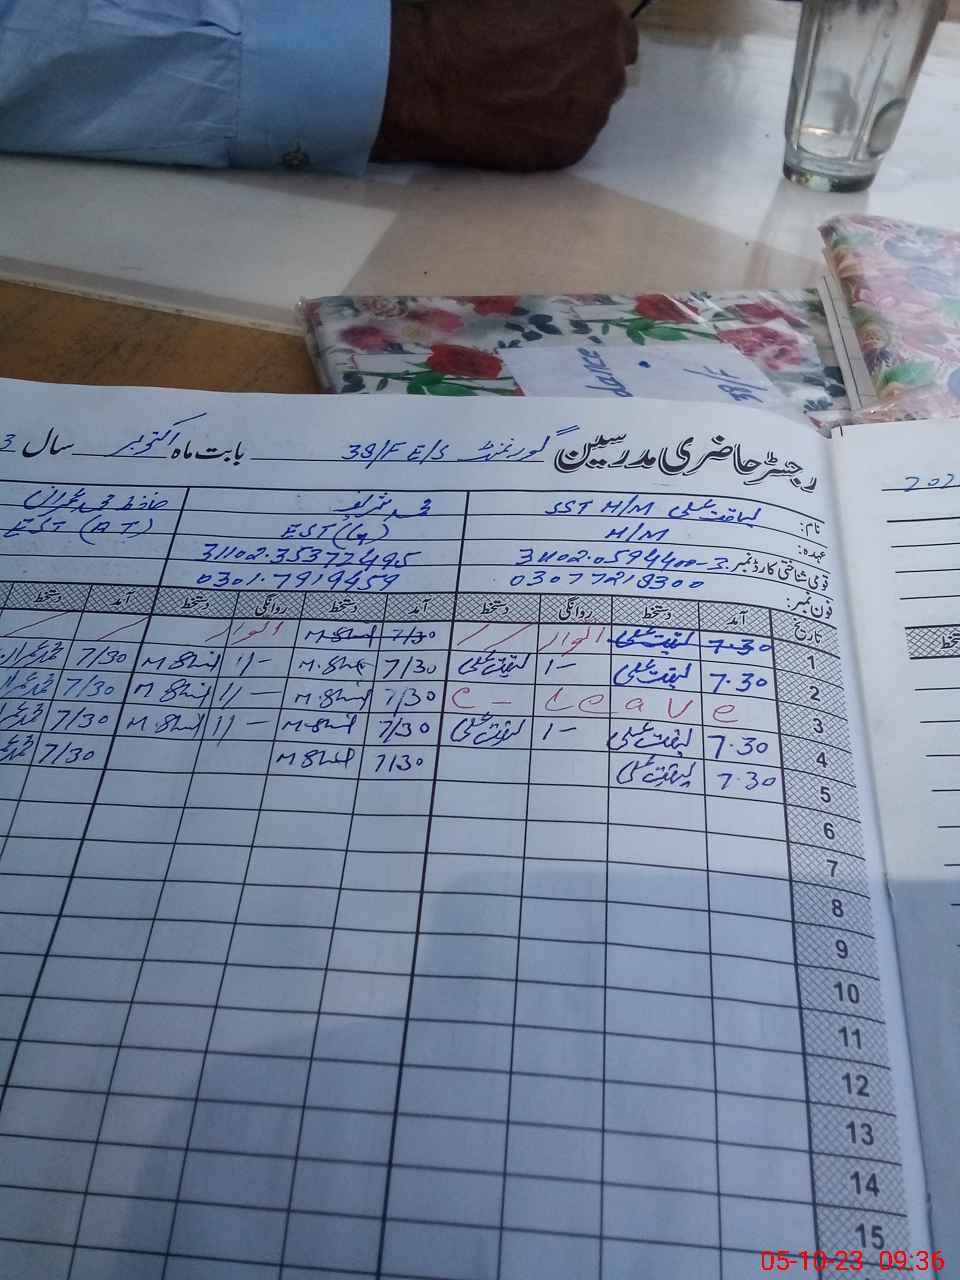 dance
38/F
رجسٹر حاضری مدرسین گورنمنٹ 38/F E/S بابت ماہ اکتوبر سال 3
202
نام: لیاقت علی SST H/M محمد شریف حافظ محمد عمران
عہدہ: H/M EST (G) EST (AT)
قومی شناختی کارڈ نمبر: 31102.0594400-3 31102.35377495
فون نمبر: 03077218300 0301.7919459
تاریخ آمد دستخط روانگی دستخط آمد دستخط روانگی دستخط آمد دستخط
1 7.30 لیاقت علی اتوار 7/30 M.Shrif اتوار
2 7.30 لیاقت علی 1- لیاقت علی 7/30 M.Shrif 1/- M.Shrif 7/30
3 C - Leave 7/30 M.Shrif 1/- M.Shrif 7/30
4 7.30 لیاقت علی 1- لیاقت علی 7/30 M.Shrif 1/- M.Shrif 7/30
5 7.30 لیاقت علی 7/30 M.Shrif 7/30
6
7
8
9
10
11
12
13
14
15
05-10-23 09:36